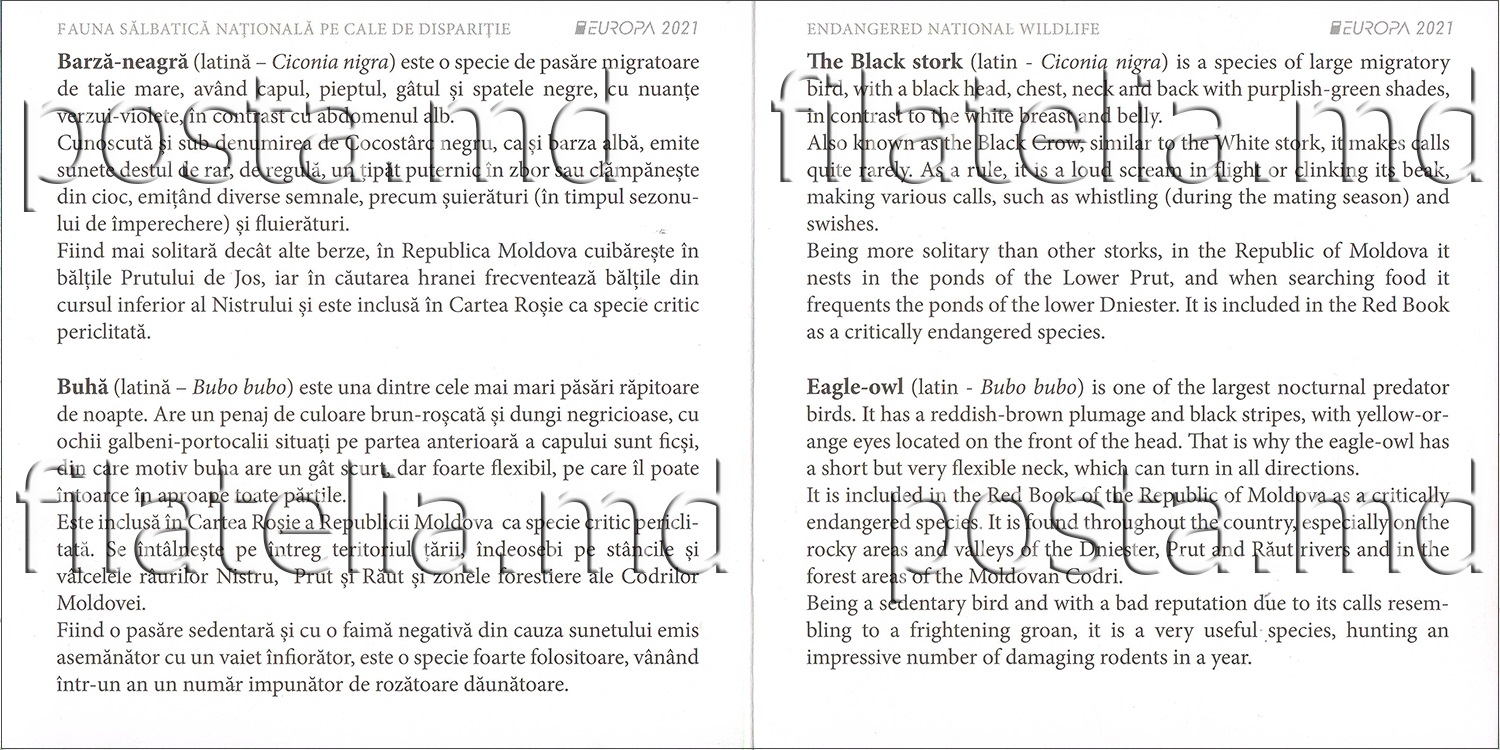 FAUNA SĂLBATICĂ NAȚIONALĂ PE CALE DE DISPARIȚIE EUROPA 2021
Barză-neagră (latină – Ciconia nigra) este o specie de pasăre migratoare
de talie mare, având capul, pieptul, gâtul și spatele negre, cu nuanțe
verzui-violete, în contrast cu abdomenul alb.
Cunoscută și sub denumirea de Cocostârc negru, ca și barza albă, emite
sunete destul de rar, de regulă, un țipăt puternic în zbor sau clămpănește
din cioc, emițând diverse semnale, precum șuierături (în timpul sezonu-
lui de împerechere) și fluierături.
Fiind mai solitară decât alte berze, în Republica Moldova cuibărește în
bălțile Prutului de Jos, iar în căutarea hranei frecventează bălțile din
cursul inferior al Nistrului și este inclusă în Cartea Roșie ca specie critic
periclitată.
Buhă (latină – Bubo bubo) este una dintre cele mai mari păsări răpitoare
de noapte. Are un penaj de culoare brun-roșcată și dungi negricioase, cu
ochii galbeni-portocalii situați pe partea anterioară a capului sunt ficși,
din care motiv buha are un gât scurt, dar foarte flexibil, pe care îl poate
întoarce în aproape toate părțile.
Este inclusă în Cartea Roșie a Republicii Moldova ca specie critic pericli-
tată. Se întâlnește pe întreg teritoriul țării, îndeosebi pe stâncile și
vâlcelele râurilor Nistru, Prut și Răut și zonele forestiere ale Codrilor
Moldovei.
Fiind o pasăre sedentară și cu o faimă negativă din cauza sunetului emis
asemănător cu un vaiet înfiorător, este o specie foarte folositoare, vânând
într-un an un număr impunător de rozătoare dăunătoare.
posta.md
filatelia.md
ENDANGERED NATIONAL WILDLIFE EUROPA 2021
The Black stork (latin - Ciconia nigra) is a species of large migratory
bird, with a black head, chest, neck and back with purplish-green shades,
in contrast to the white breast and belly.
Also known as the Black Crow, similar to the White stork, it makes calls
quite rarely. As a rule, it is a loud scream in flight or clinking its beak,
making various calls, such as whistling (during the mating season) and
swishes.
Being more solitary than other storks, in the Republic of Moldova it
nests in the ponds of the Lower Prut, and when searching food it
frequents the ponds of the lower Dniester. It is included in the Red Book
as a critically endangered species.
Eagle-owl (latin - Bubo bubo) is one of the largest nocturnal predator
birds. It has a reddish-brown plumage and black stripes, with yellow-or-
ange eyes located on the front of the head. That is why the eagle-owl has
a short but very flexible neck, which can turn in all directions.
It is included in the Red Book of the Republic of Moldova as a critically
endangered species. It is found throughout the country, especially on the
rocky areas and valleys of the Dniester, Prut and Răut rivers and in the
forest areas of the Moldovan Codri.
Being a sedentary bird and with a bad reputation due to its calls resem-
bling to a frightening groan, it is a very useful species, hunting an
impressive number of damaging rodents in a year.
filatelia.md
posta.md